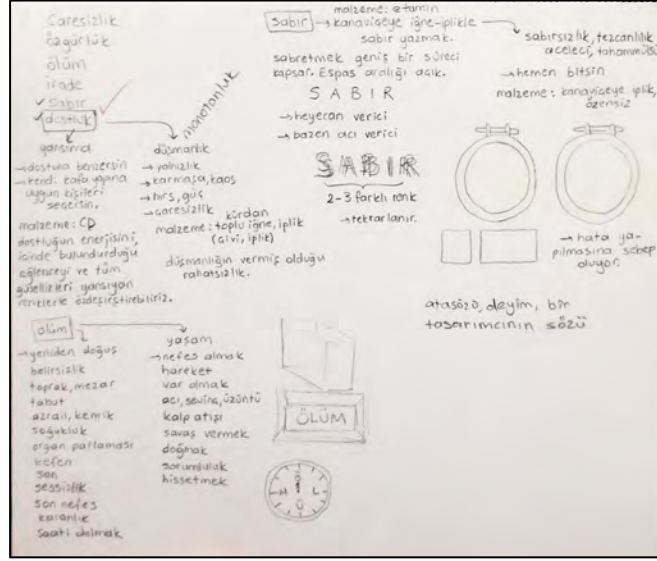 Çaresizlik
özgürlük
ölüm
irade
✓ sabır
✓ dostluk
monotonluk
yansıma
→ dostuna benzersin
→ kendi kafa yapına
uygun kişileri
seçersin.
malzeme: CD
dostluğun enerjisini,
içinde bulundurduğu
eğlenceyi ve tüm
güzellikleri yansıyan
renklerle özdeşleştirebiliriz.
düşmanlık
→ yalnızlık
→ karmaşa, kaos
→ hırs, güç
→ çaresizlik
kürdan
malzeme: toplu iğne, iplik
(çivi, iplik)
düşmanlığın vermiş olduğu
rahatsızlık.
malzeme: etamin
sabır → kanaviçeye iğne-iplikle
sabır yazmak.
sabretmek geniş bir süreci
kapsar. Espas aralığı açık.
S A B I R
→ heyecan verici
→ bazen acı verici
SABIR
2-3 farklı renk
→ tekrarlanır.
sabırsızlık, tezcanlılık
aceleci,
→ hemen bitsin
malzeme: kanaviçeye iplik,
özensiz
→ hata ya-
pılmasına sebep
oluyor.
atasözü, deyim, bir
tasarımcının sözü
ölüm
→ yeniden doğuş
belirsizlik
toprak, mezar
tabut
azrail, kemik
soğukluk
organ patlaması
kefen
son
sessizlik
son nefes
karanlık
saati dolmak
yaşam
→ nefes almak
hareket
var olmak
acı, sevinç, üzüntü
kalp atışı
savaş vermek
doğmak
sorumluluk
hissetmek
ÖLÜM
Ö
M L
Ü